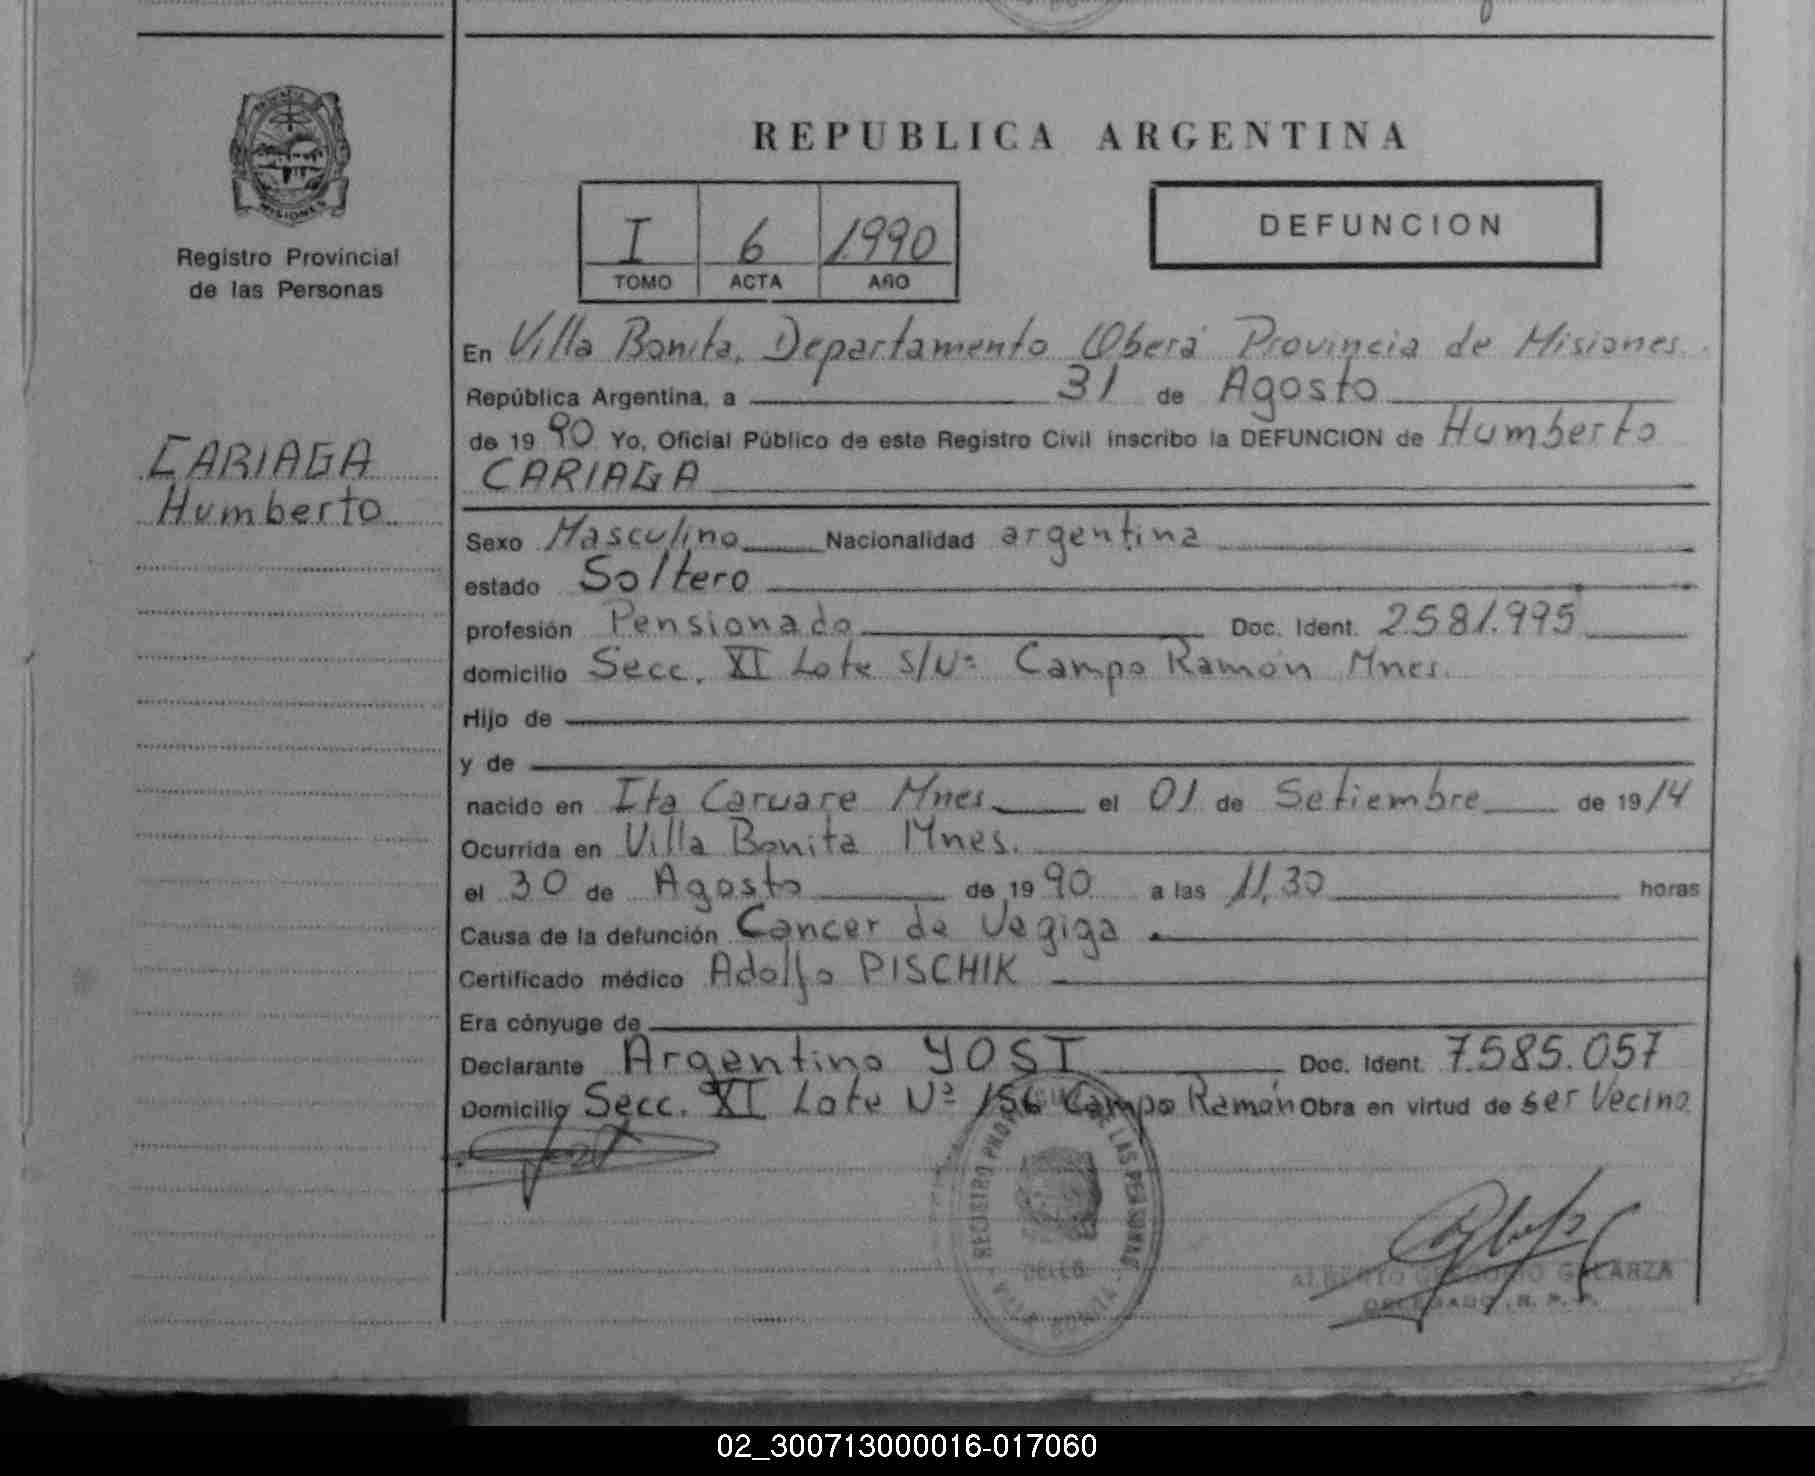 REPUBLICA ARGENTINA
PROVINCIA
MISIONES
Registro Provincial
de las Personas
I 6 1990
TOMO ACTA AÑO
DEFUNCION
CARIAGA
Humberto
En Villa Bonita, Departamento Oberá Provincia de Misiones
República Argentina, a 31 de Agosto
de 1990 Yo, Oficial Público de este Registro Civil inscribo la DEFUNCION de Humberto
CARIAGA
Sexo Masculino Nacionalidad argentina
estado Soltero
profesión Pensionado Doc. Ident. 2.581.995
domicilio Secc. XI Lote S/Nº Campo Ramón Mnes.
Hijo de
y de
nacido en Ita Caruare Mnes el 01 de Setiembre de 1914
Ocurrida en Villa Bonita Mnes.
el 30 de Agosto de 1990 a las 11,30 horas
Causa de la defunción Cancer de Vegiga
Certificado médico Adolfo PISCHIK
Era cónyuge de
Declarante Argentino YOST Doc. Ident. 7.585.057
Domicilio Secc. XI Lote Nº 156 Campo Ramón Obra en virtud de ser Vecino
REGISTRO PROVINCIAL DE LAS PERSONAS
VILLA BONITA
ALBERTO GREGORIO GALARZA
DELEGADO R. P. P.
02_300713000016-017060